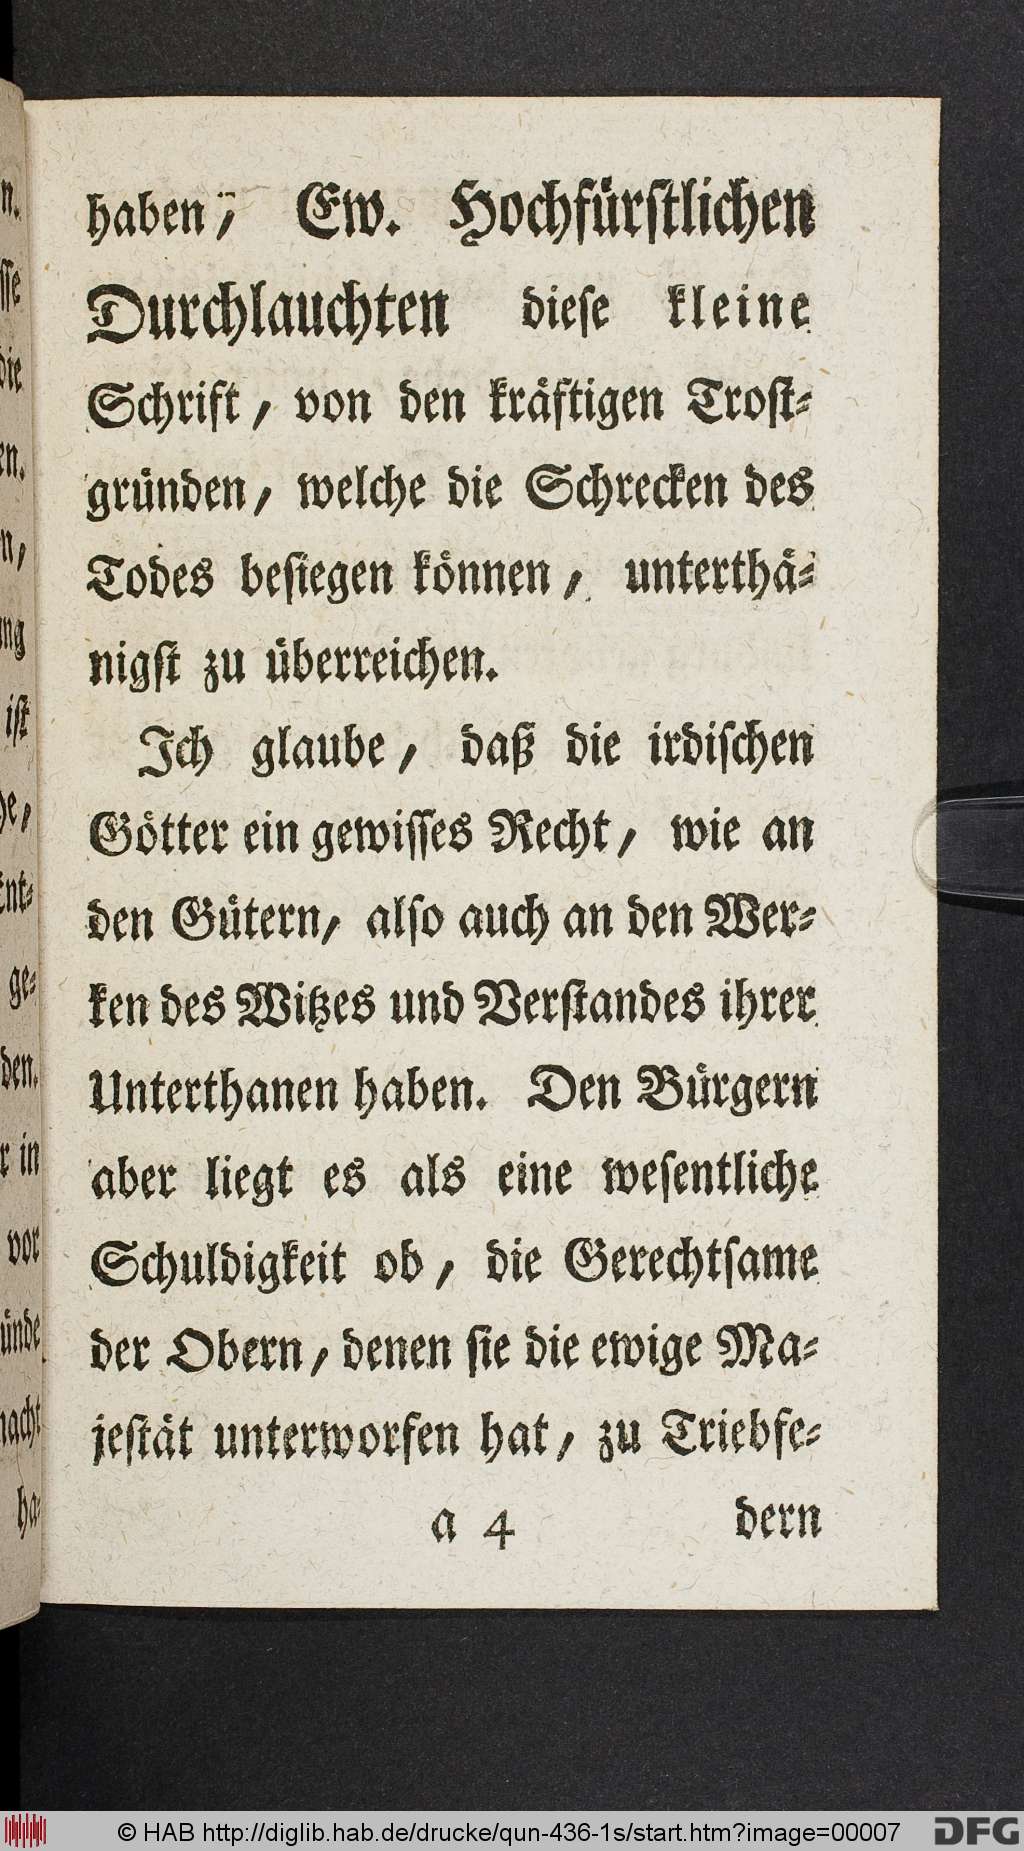 haben, Ew. Hochfürſtlichen
Durchlauchten dieſe kleine
Schrift, von den kräftigen Troſt-
gründen, welche die Schrecken des
Todes beſiegen können, unterthä-
nigſt zu überreichen.
Ich glaube, daß die irdiſchen
Götter ein gewiſſes Recht, wie an
den Gütern, alſo auch an den Wer-
ken des Witzes und Verſtandes ihrer
Unterthanen haben. Den Bürgern
aber liegt es als eine weſentliche
Schuldigkeit ob, die Gerechtſame
der Obern, denen ſie die ewige Ma-
jeſtät unterworfen hat, zu Triebfe-
a 4 dern
© HAB http://diglib.hab.de/drucke/qun-436-1s/start.htm?image=00007
DFG